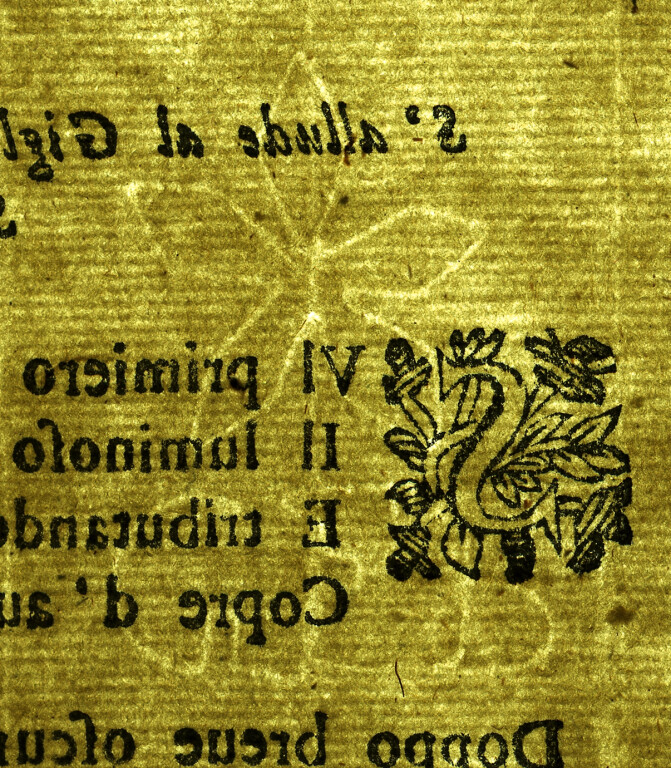 S' allude al Gigl
S
SVl primiero
Il luminoſo
E tributand
Copre d' au
Doppo breue oſcur